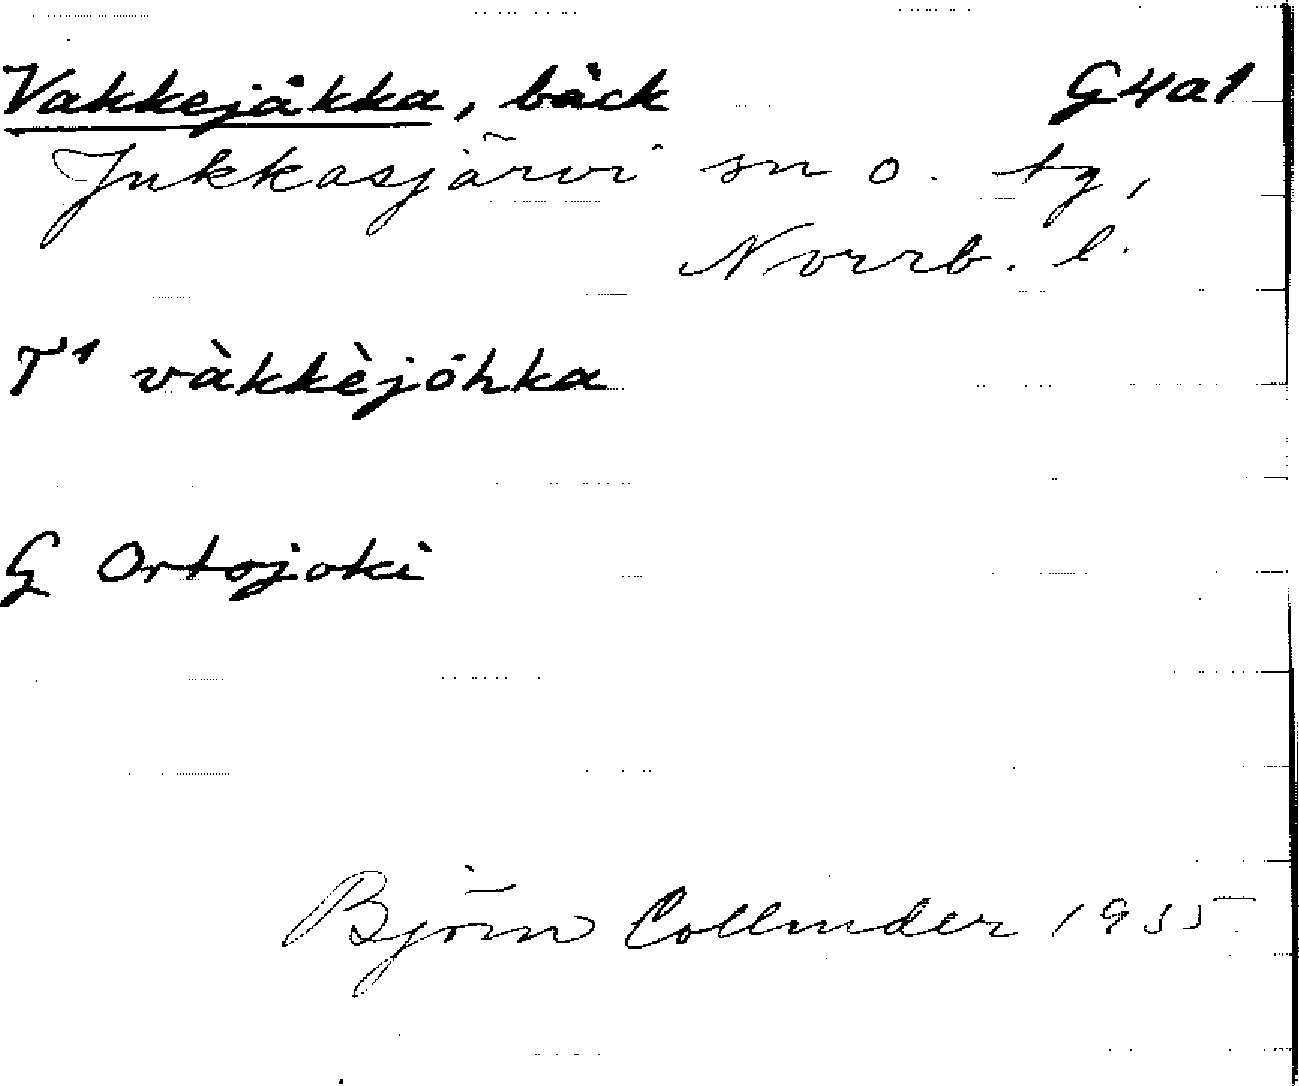 Vakkejåkka, bäck G4a1
Jukkasjärvi sn o. tg,
Norrb. l.
T¹ vàkkèjóhka
G Ortojoki
Björn Collinder 1955